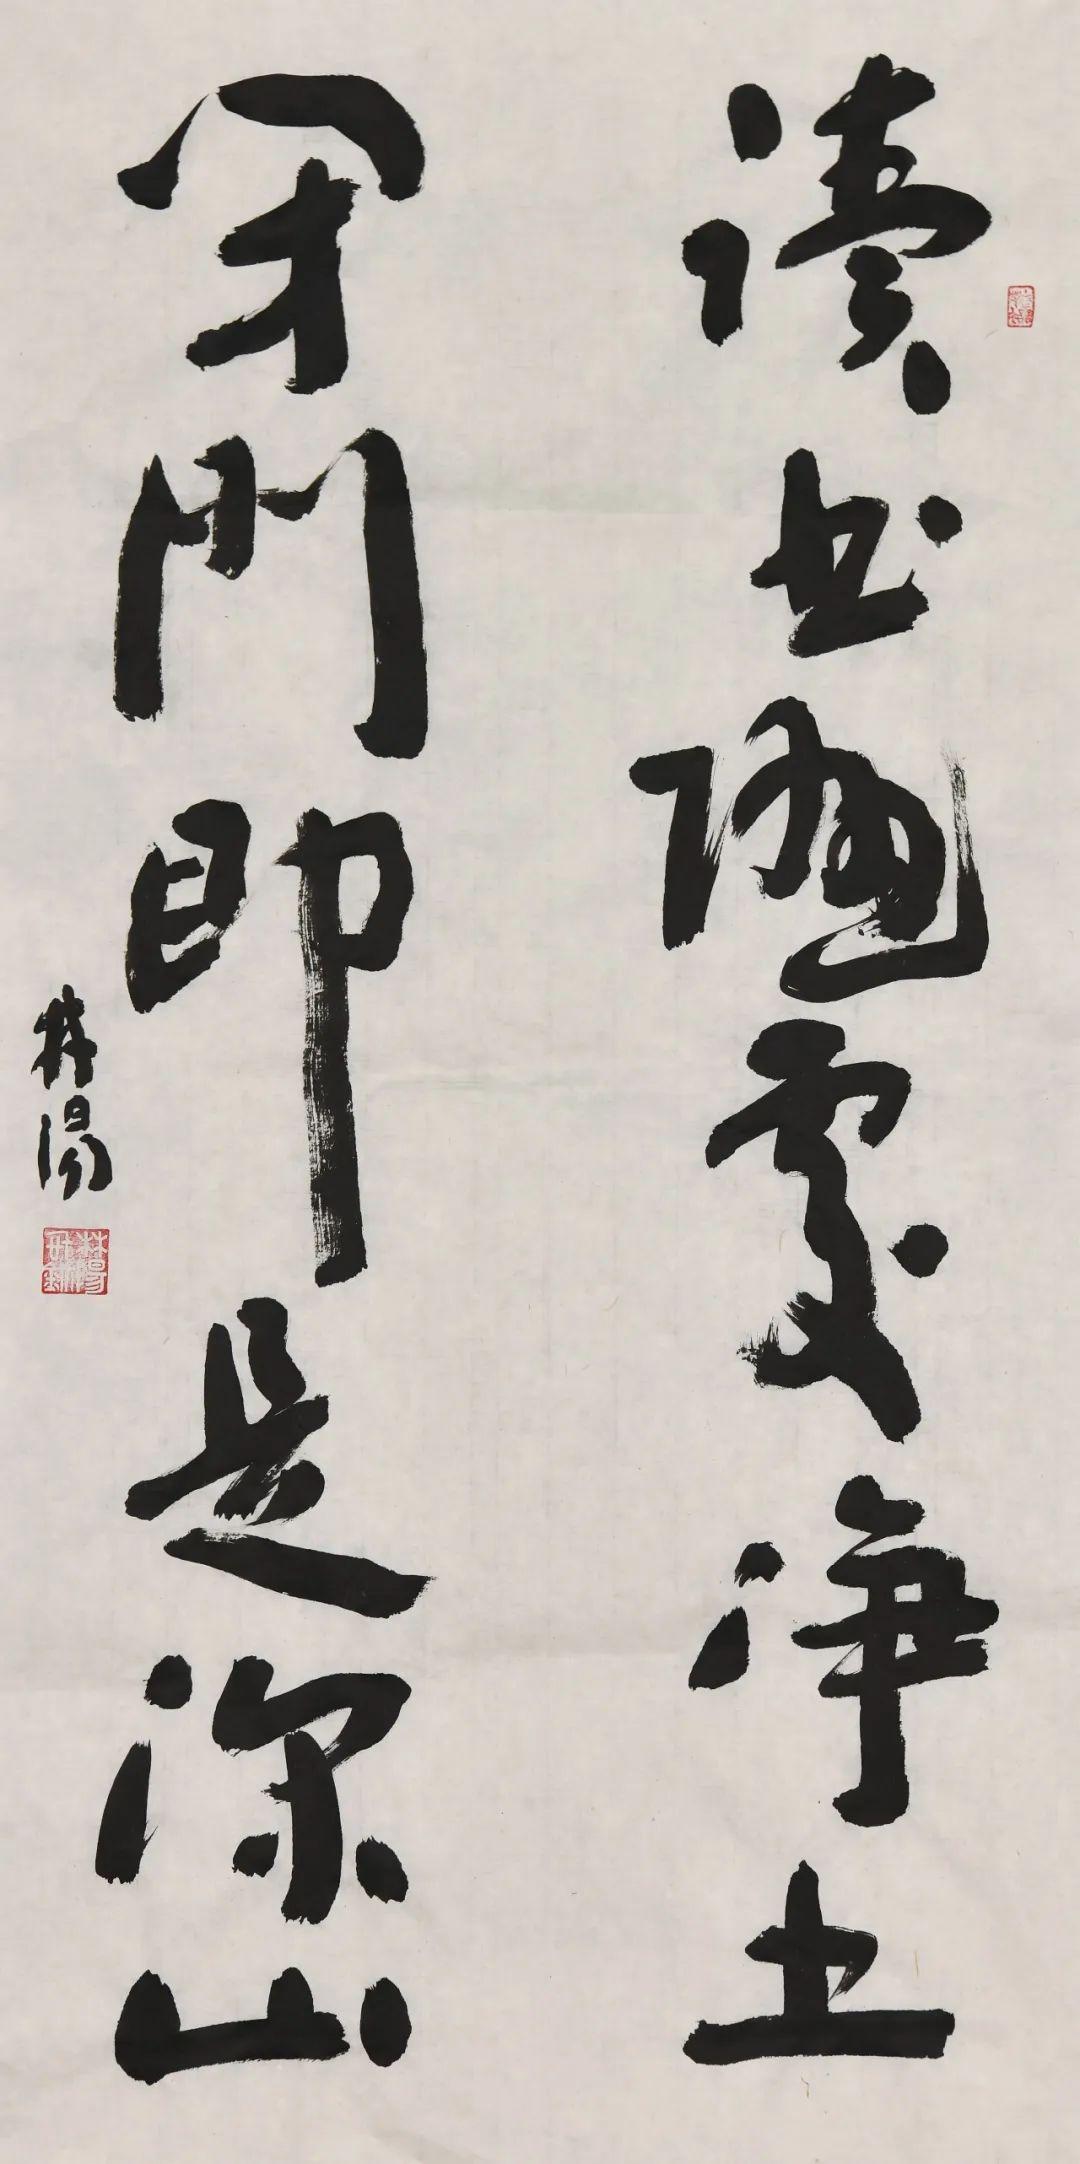 讀書隨處净土
閉門即是深山
林陽